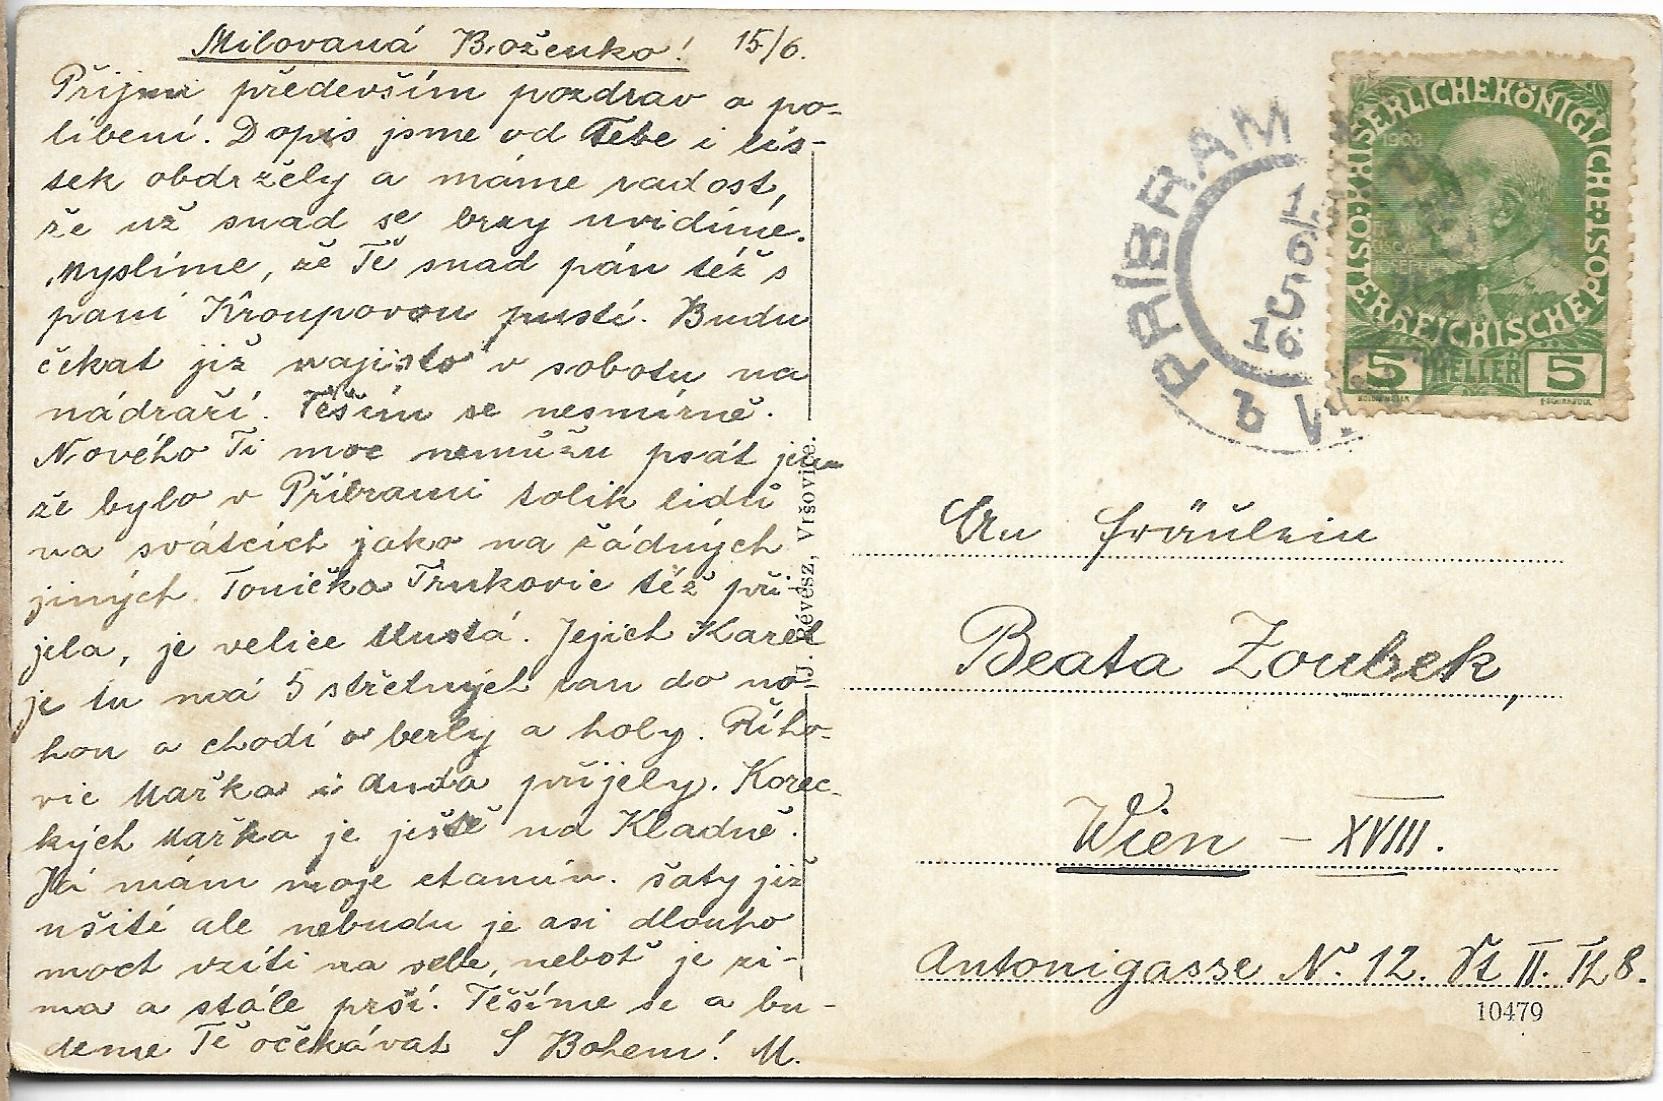 Milovaná Boženko! 15/6.
Přijmi především pozdrav a po-
líbení. Dopis jsme od Tebe i lís-
tek obdržely a máme radost,
že už snad se brzy uvidíme.
Myslíme, že Tě snad pán též s
paní Kroupovou pustí. Budu
čekat již najisto v sobotu na
nádraží. Těším se nesmírně.
Nového Ti moc nemůžu psát jen
že bylo v Příbrami tolik lidu
na svátcích jako na žádných
jiných. Tonička Trnkovic též při
jela, je velice tlustá. Jejich Karel
je tu má 5 střelných ran do no-
hou a chodí o berly a holy. Řího-
vic Mařka i Anda přijely. Korec-
kých Mařka je ještě na Kladně.
Já mám moje etamín. šaty již
ušité ale nebudu je asi dlouho
moct vzíti na sebe, neboť je zi-
ma a stále prší. Těšíme se a bu-
deme Tě očekávat S Bohem! M.
J. Révész, Vršovice.
PŘÍBRAM
16
6
KAISERLICHE KÖNIGLICHE ÖSTERREICHISCHE POST
1908
5 HELLER 5
An Fräulein
Beata Zoubek,
Wien – XVIII.
Antonigasse N. 12. St II. Th 8.
10479